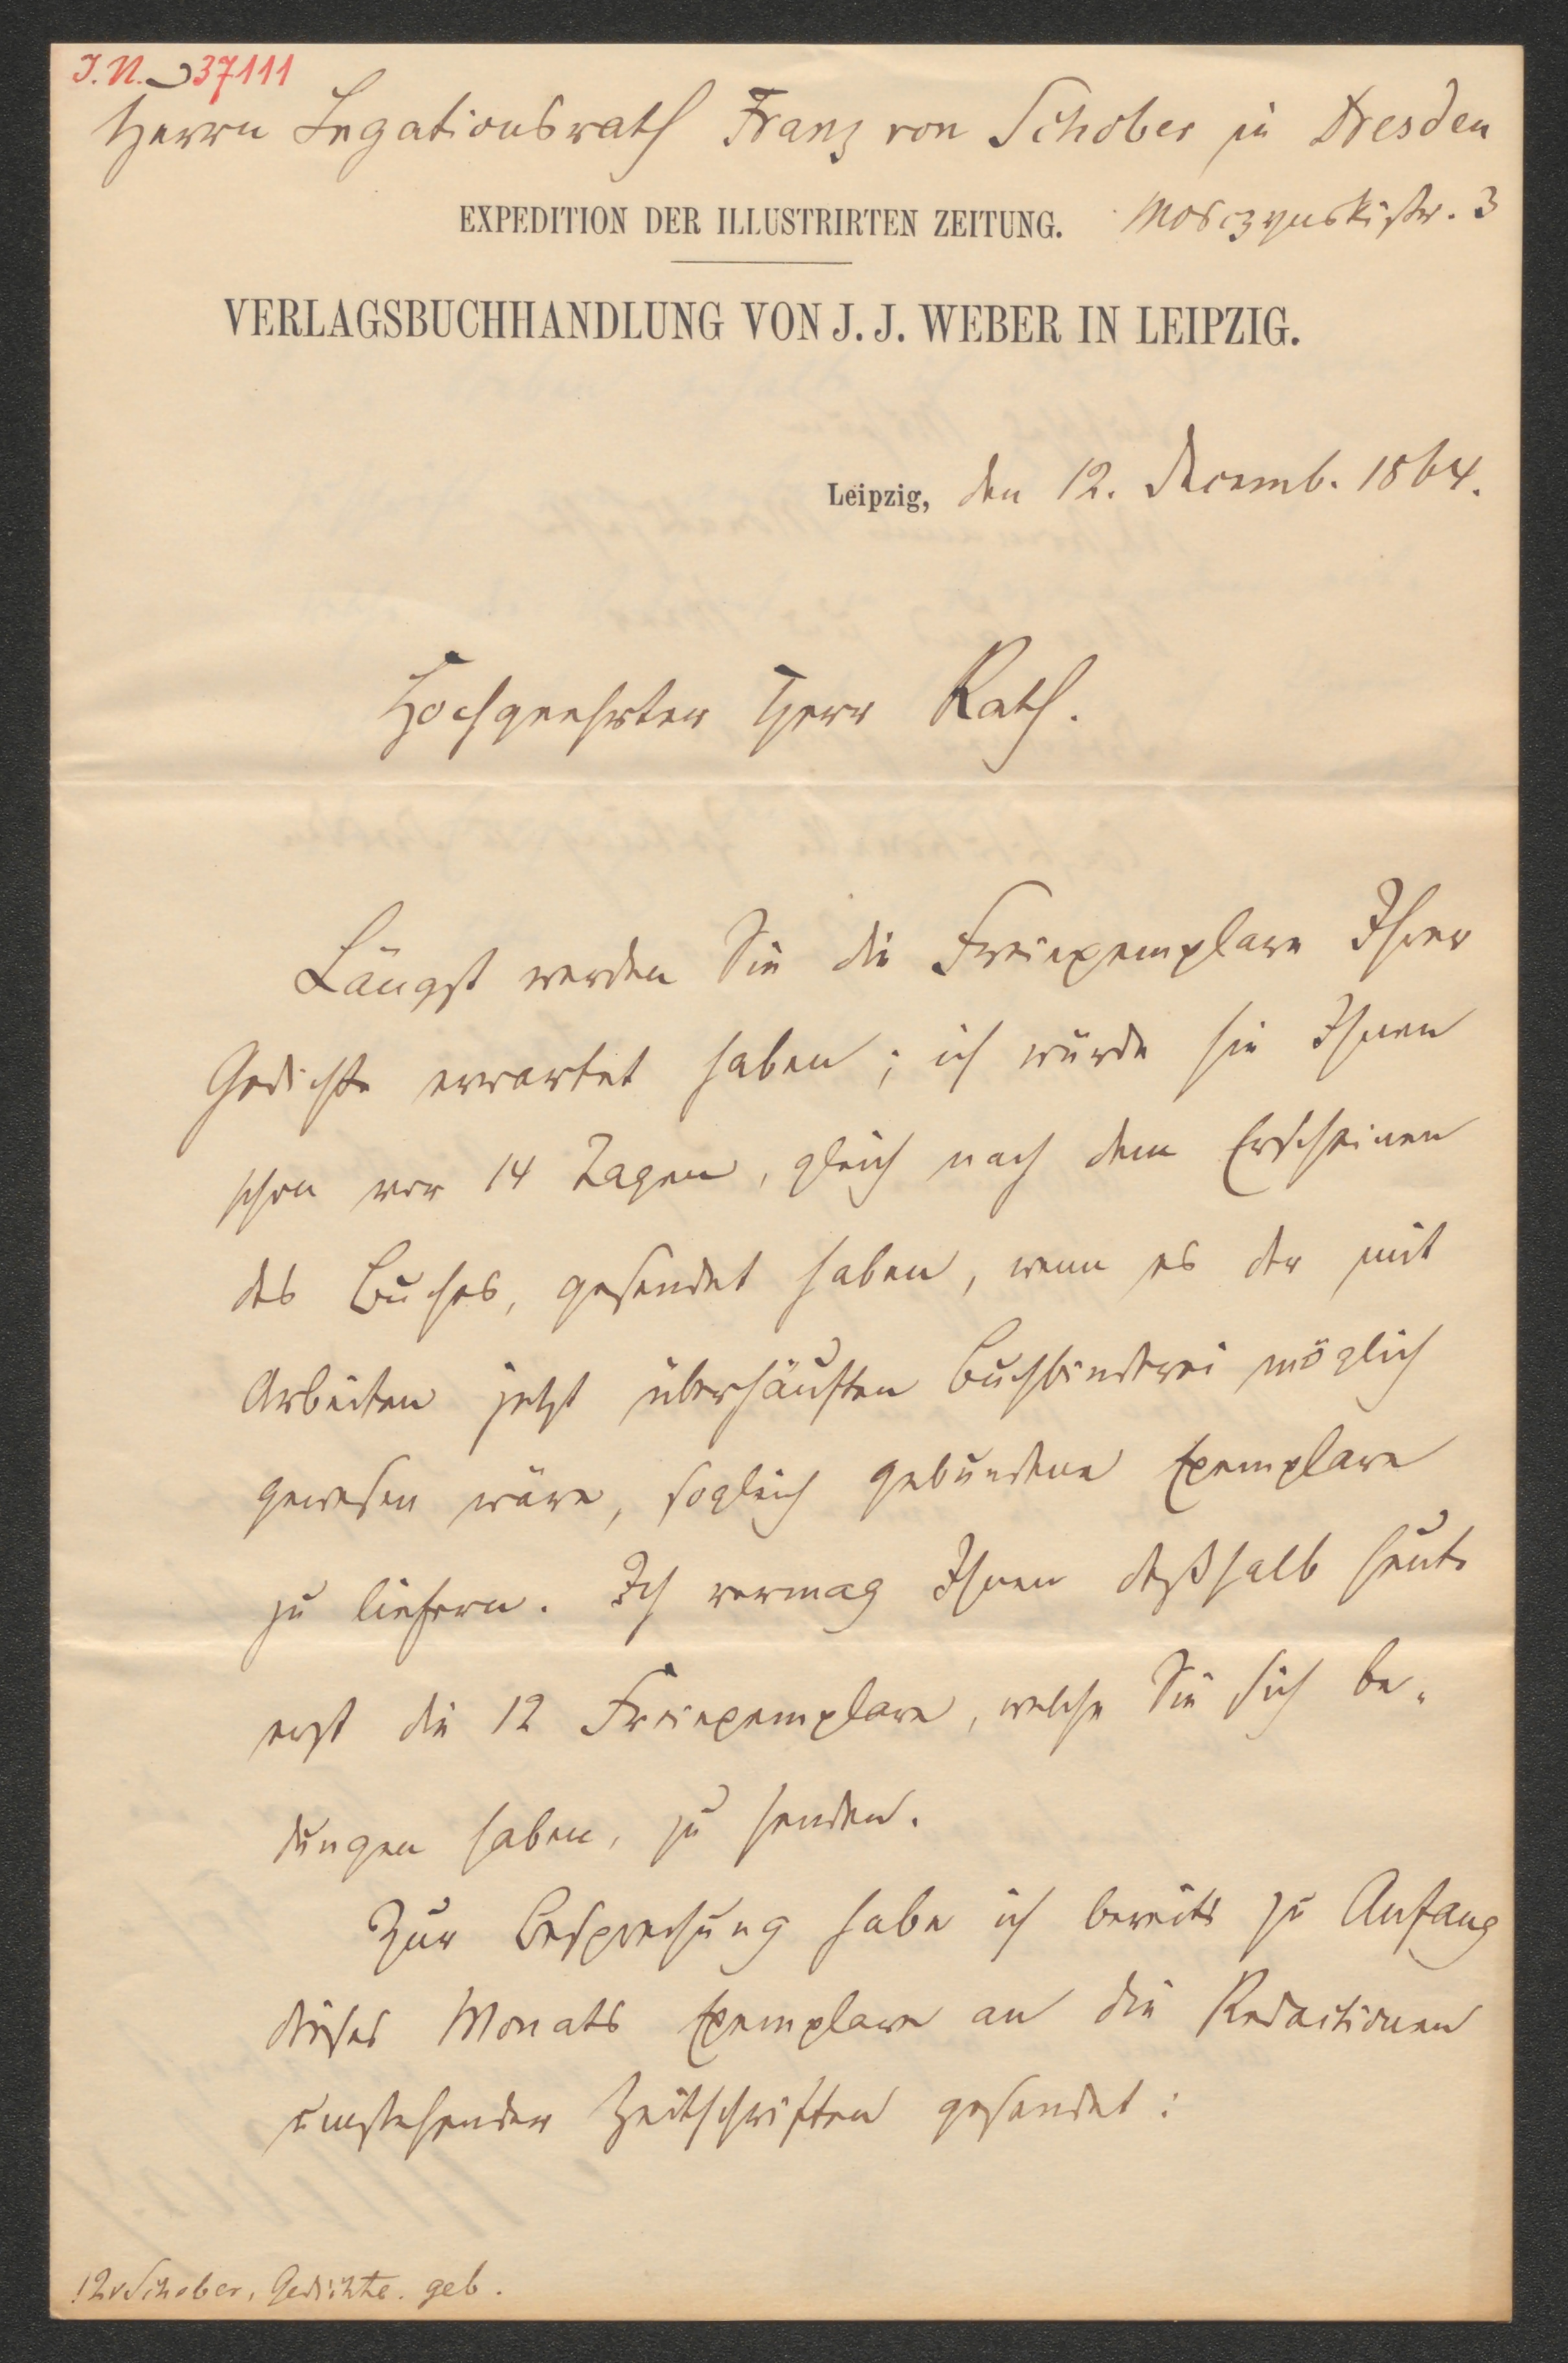 I. N. 37111
Herrn Legationsrath Franz von Schober in Dresden
EXPEDITION DER ILLUSTRIRTEN ZEITUNG. Mosczynskistr. 3
VERLAGSBUCHHANDLUNG VON J. J. WEBER IN LEIPZIG.
Leipzig, den 12. Decemb. 1864.
Hochgeehrter Herr Rath.
Längst werden Sie die Freiexemplare Ihrer
Gedichte erwartet haben; ich würde sie Ihnen
schon vor 14 Tagen, gleich nach dem Erscheinen
des Buches, gesendet haben, wenn es der mit
Arbeiten jetzt überhäuften Buchbinderei möglich
gewesen wäre, sogleich gebundene Exemplare
zu liefern. Ich vermag Ihnen deßhalb heute
erst die 12 Freiexemplare, welche Sie sich be-
dungen haben, zu senden.
Zur Besprechung habe ich bereits zu Anfang
dieses Monats Exemplare an die Redactionen
umstehender Zeitschriften gesendet:
12 v Schober, Gedichte. geb.